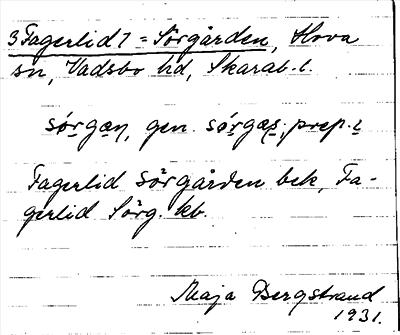 3 Fagerlid 7 = Sörgården, Hova
sn, Vadsbo hd, Skarab. l.
sörgan, gen. sörgas; prep. i
Fagerlid Sörgården bek, Fa-
gerlid Sörg. kb.
Maja Bergstrand
1931.